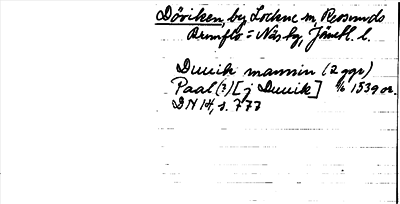 Döviken, by, Lockne sn, Revsunds
Brunflo = Näs tg, Jämtl. l.
Duuik mannin (2 ggr)
Paal (?) [j Duuik] 1/6 1539 or.
DN 14, s. 777